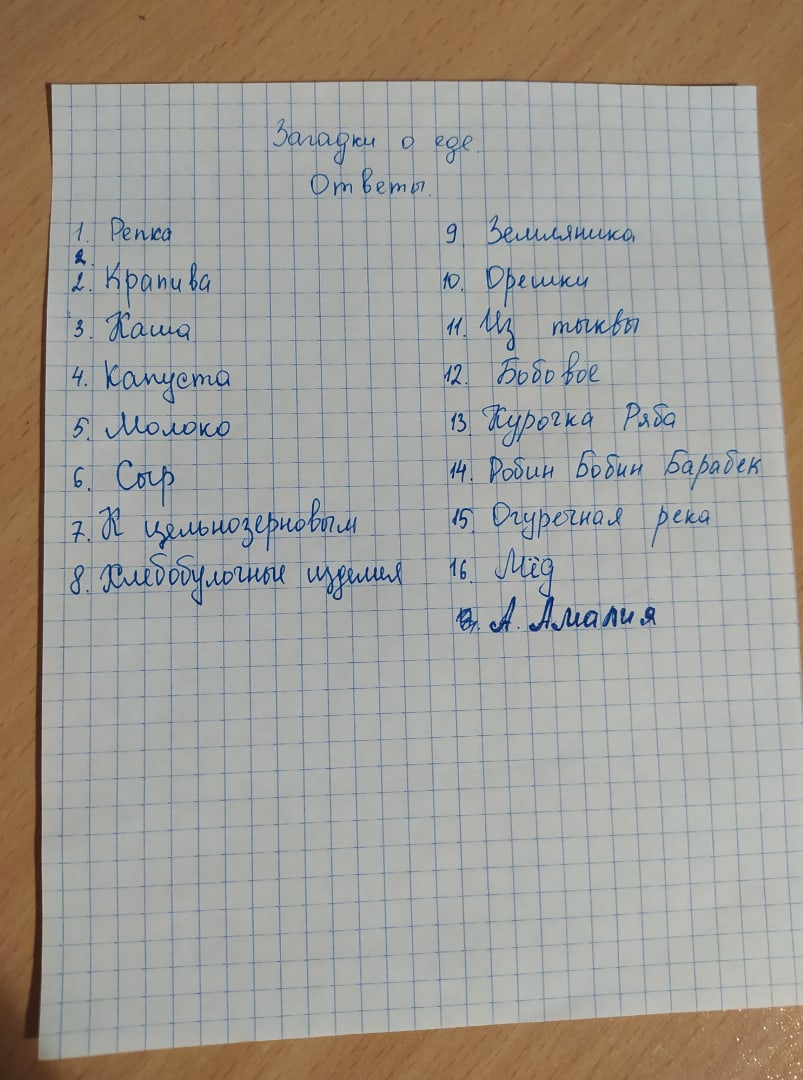 Загадки о еде.
Ответы.
1. Репка
2.
2. Крапива
3. Каша
4. Капуста
5. Молоко
6. Сыр
7. К цельнозерновым
8. Хлебобулочные изделия
9 Земляника
10. Орешки
11. Из тыквы
12. Бобовое
13 Курочка Ряба
14. Робин Бобин Барабек
15 Огуречная река
16. Мёд
А. Амалия